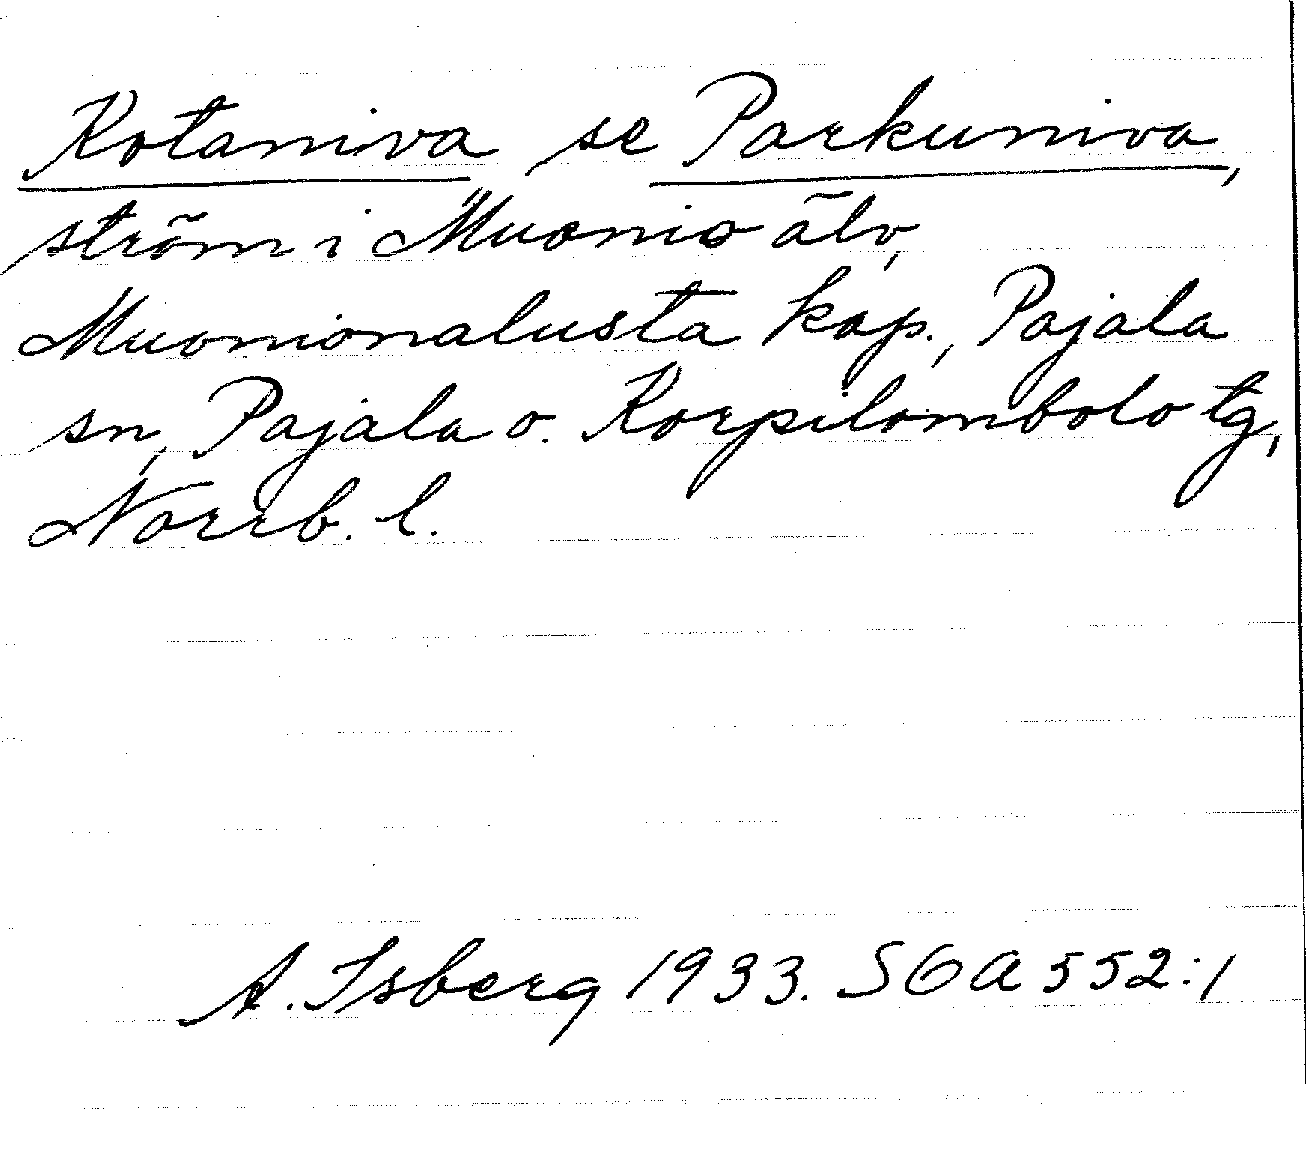 Kotaniva se Parkuniva,
ström i Muonio älv,
Muonionalusta kap., Pajala
sn, Pajala o. Korpilombolo tg,
Norrb. l.
A. Isberg 1933. SOA 552:1